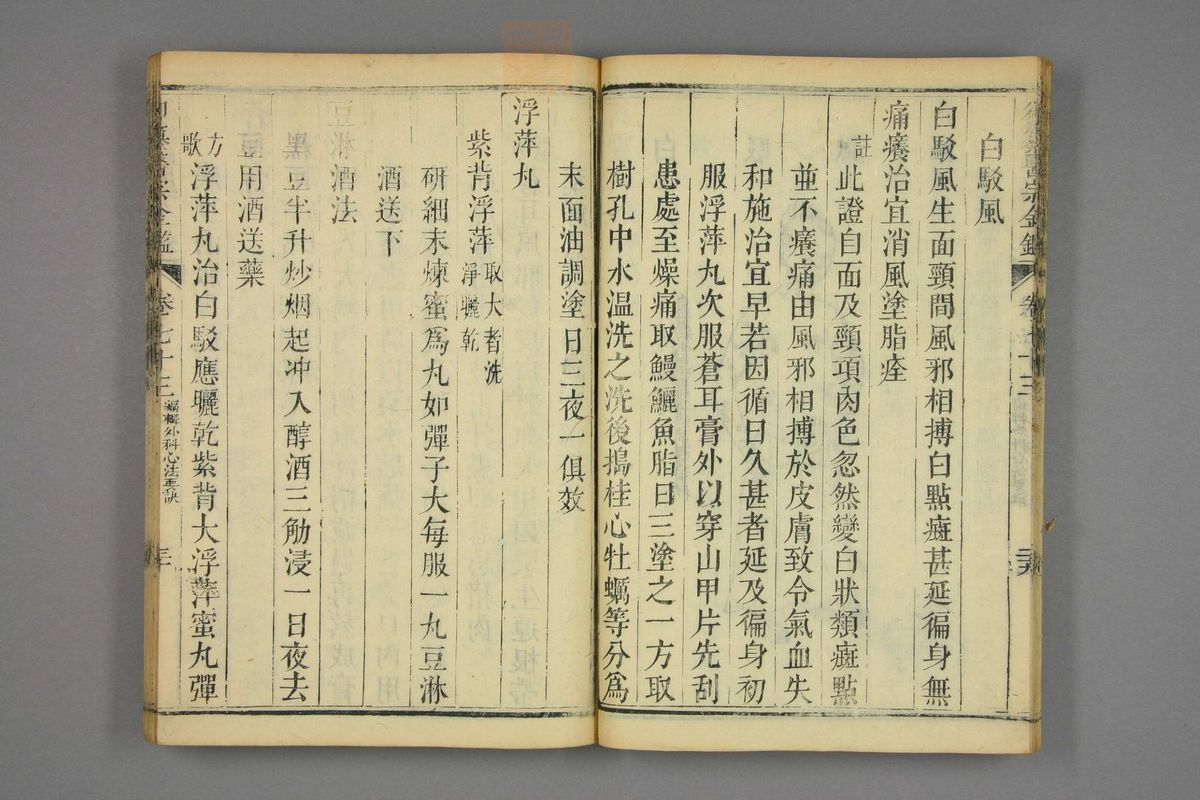 白駁風
白駁風生面頸間風邪相搏白點癍甚延徧身無
痛癢治宜消風塗脂痊
註此證自面及頸項肉色忽然變白狀類癍點
並不癢痛由風邪相搏於皮膚致令氣血失
和施治宜早若因循日久甚者延及徧身初
服浮萍丸次服蒼耳膏外以穿山甲片先刮
患處至燥痛取鰻鱺魚脂日三塗之一方取
樹孔中水溫洗之洗後搗桂心牡蠣等分爲
末面油調塗日三夜一俱效
浮萍丸
紫背浮萍取大者洗淨曬乾
研細末煉蜜爲丸如彈子大每服一丸豆淋
酒送下
豆淋酒法
黑豆半升炒烟起冲入醇酒三觔浸一日夜去
豆用酒送藥
方歌浮萍丸治白駁應曬乾紫背大浮萍蜜丸彈
卷七十三編輯外科心法要訣